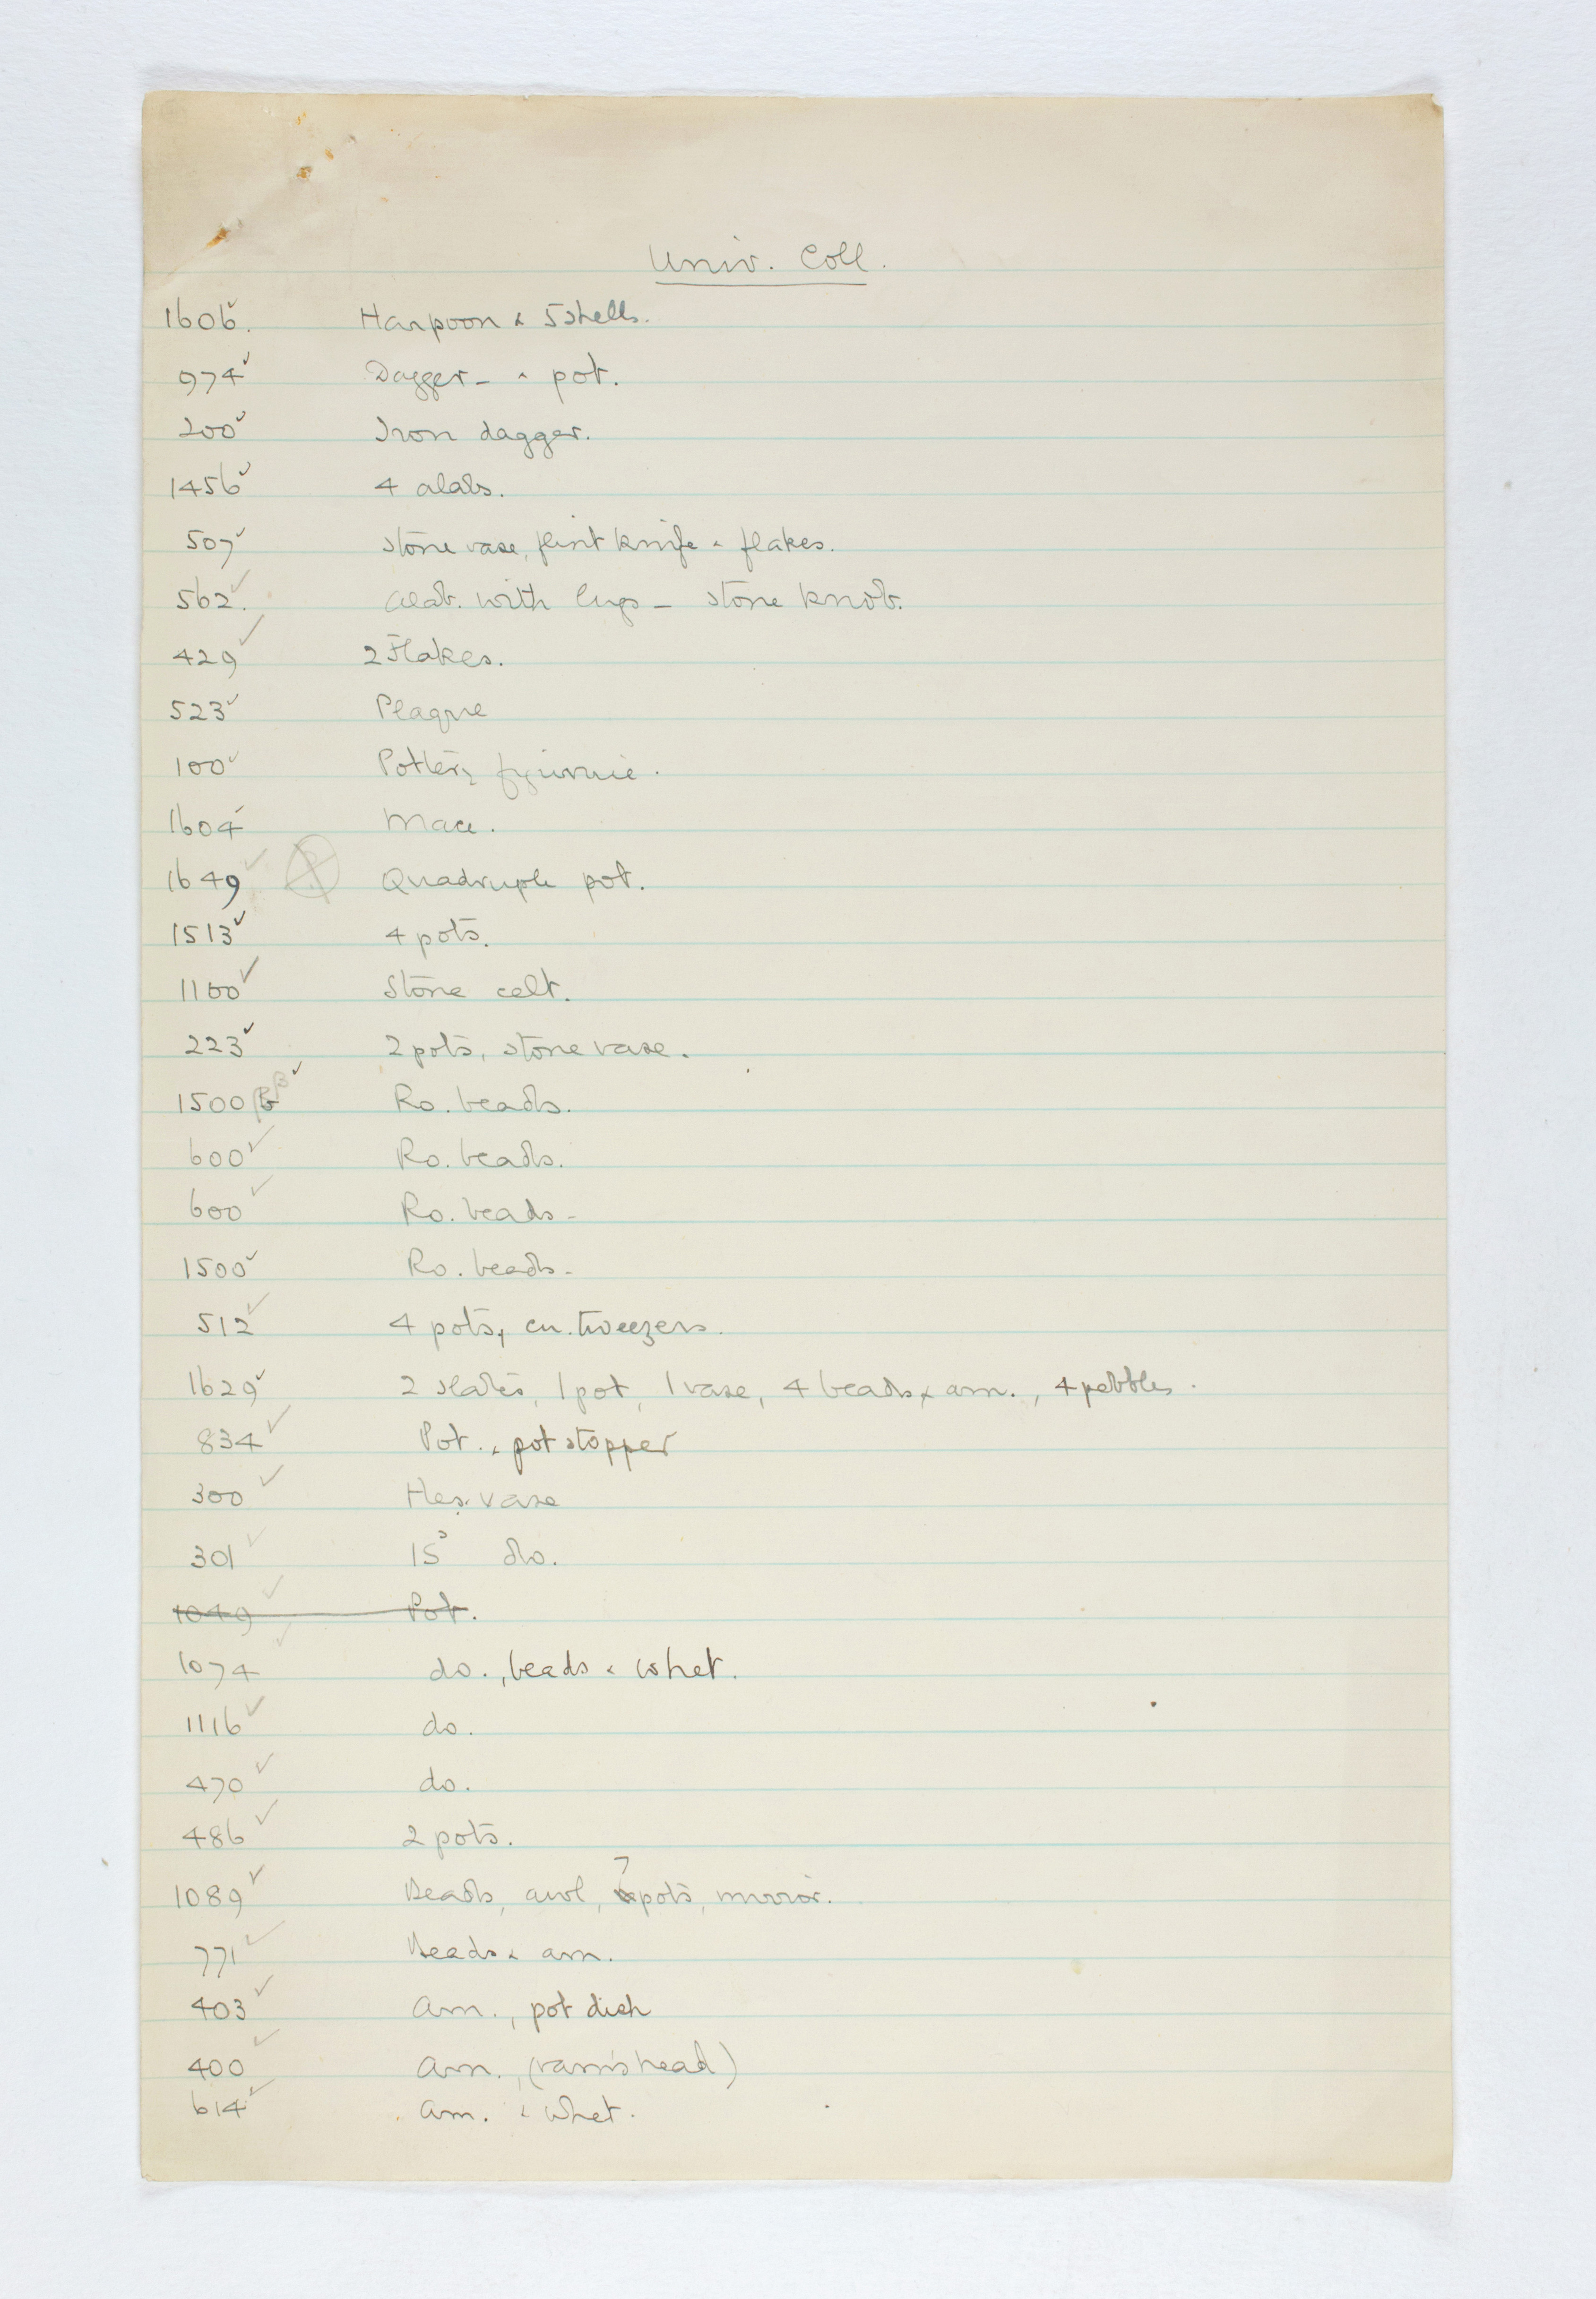 Univ. Coll.
1606. ✓ Harpoon & 5 shells.
974 ✓ Dagger - & pot.
200 ✓ Iron dagger.
1456 ✓ 4 alabs.
507 ✓ Stone vase, flint knife & flakes.
562. ✓ Alab. with lugs - stone knob.
429 ✓ 2 Flakes.
523 ✓ Plaque
100 ✓ Pottery figurine.
1604 ✓ Mace.
1649 ✓ Quadruple pot.
1513 ✓ 4 pots.
1100 ✓ Stone celt.
223 ✓ 2 pots, stone vase.
1500 B ✓ Ro. beads.
600 ✓ Ro. beads.
600 ✓ Ro. beads -
1500 ✓ Ro. beads -
512 ✓ 4 pots, cu. tweezers.
1629 ✓ 2 slates, 1 pot, 1 vase, 4 beads & am., 4 pebbles.
834 ✓ Pot. & pot stopper
300 ✓ Hes. vase
301 ✓ 15 do.
1049 ✓ Pot.
1074 ✓ do., beads & whet.
1116 ✓ do.
470 ✓ do.
486 ✓ 2 pots.
1089 ✓ Beads, awl, 7 pots, mirror.
771 ✓ Beads & am.
403 ✓ Am., pot dish
400 ✓ Am., (ram's head)
614 ✓ Am. & whet.